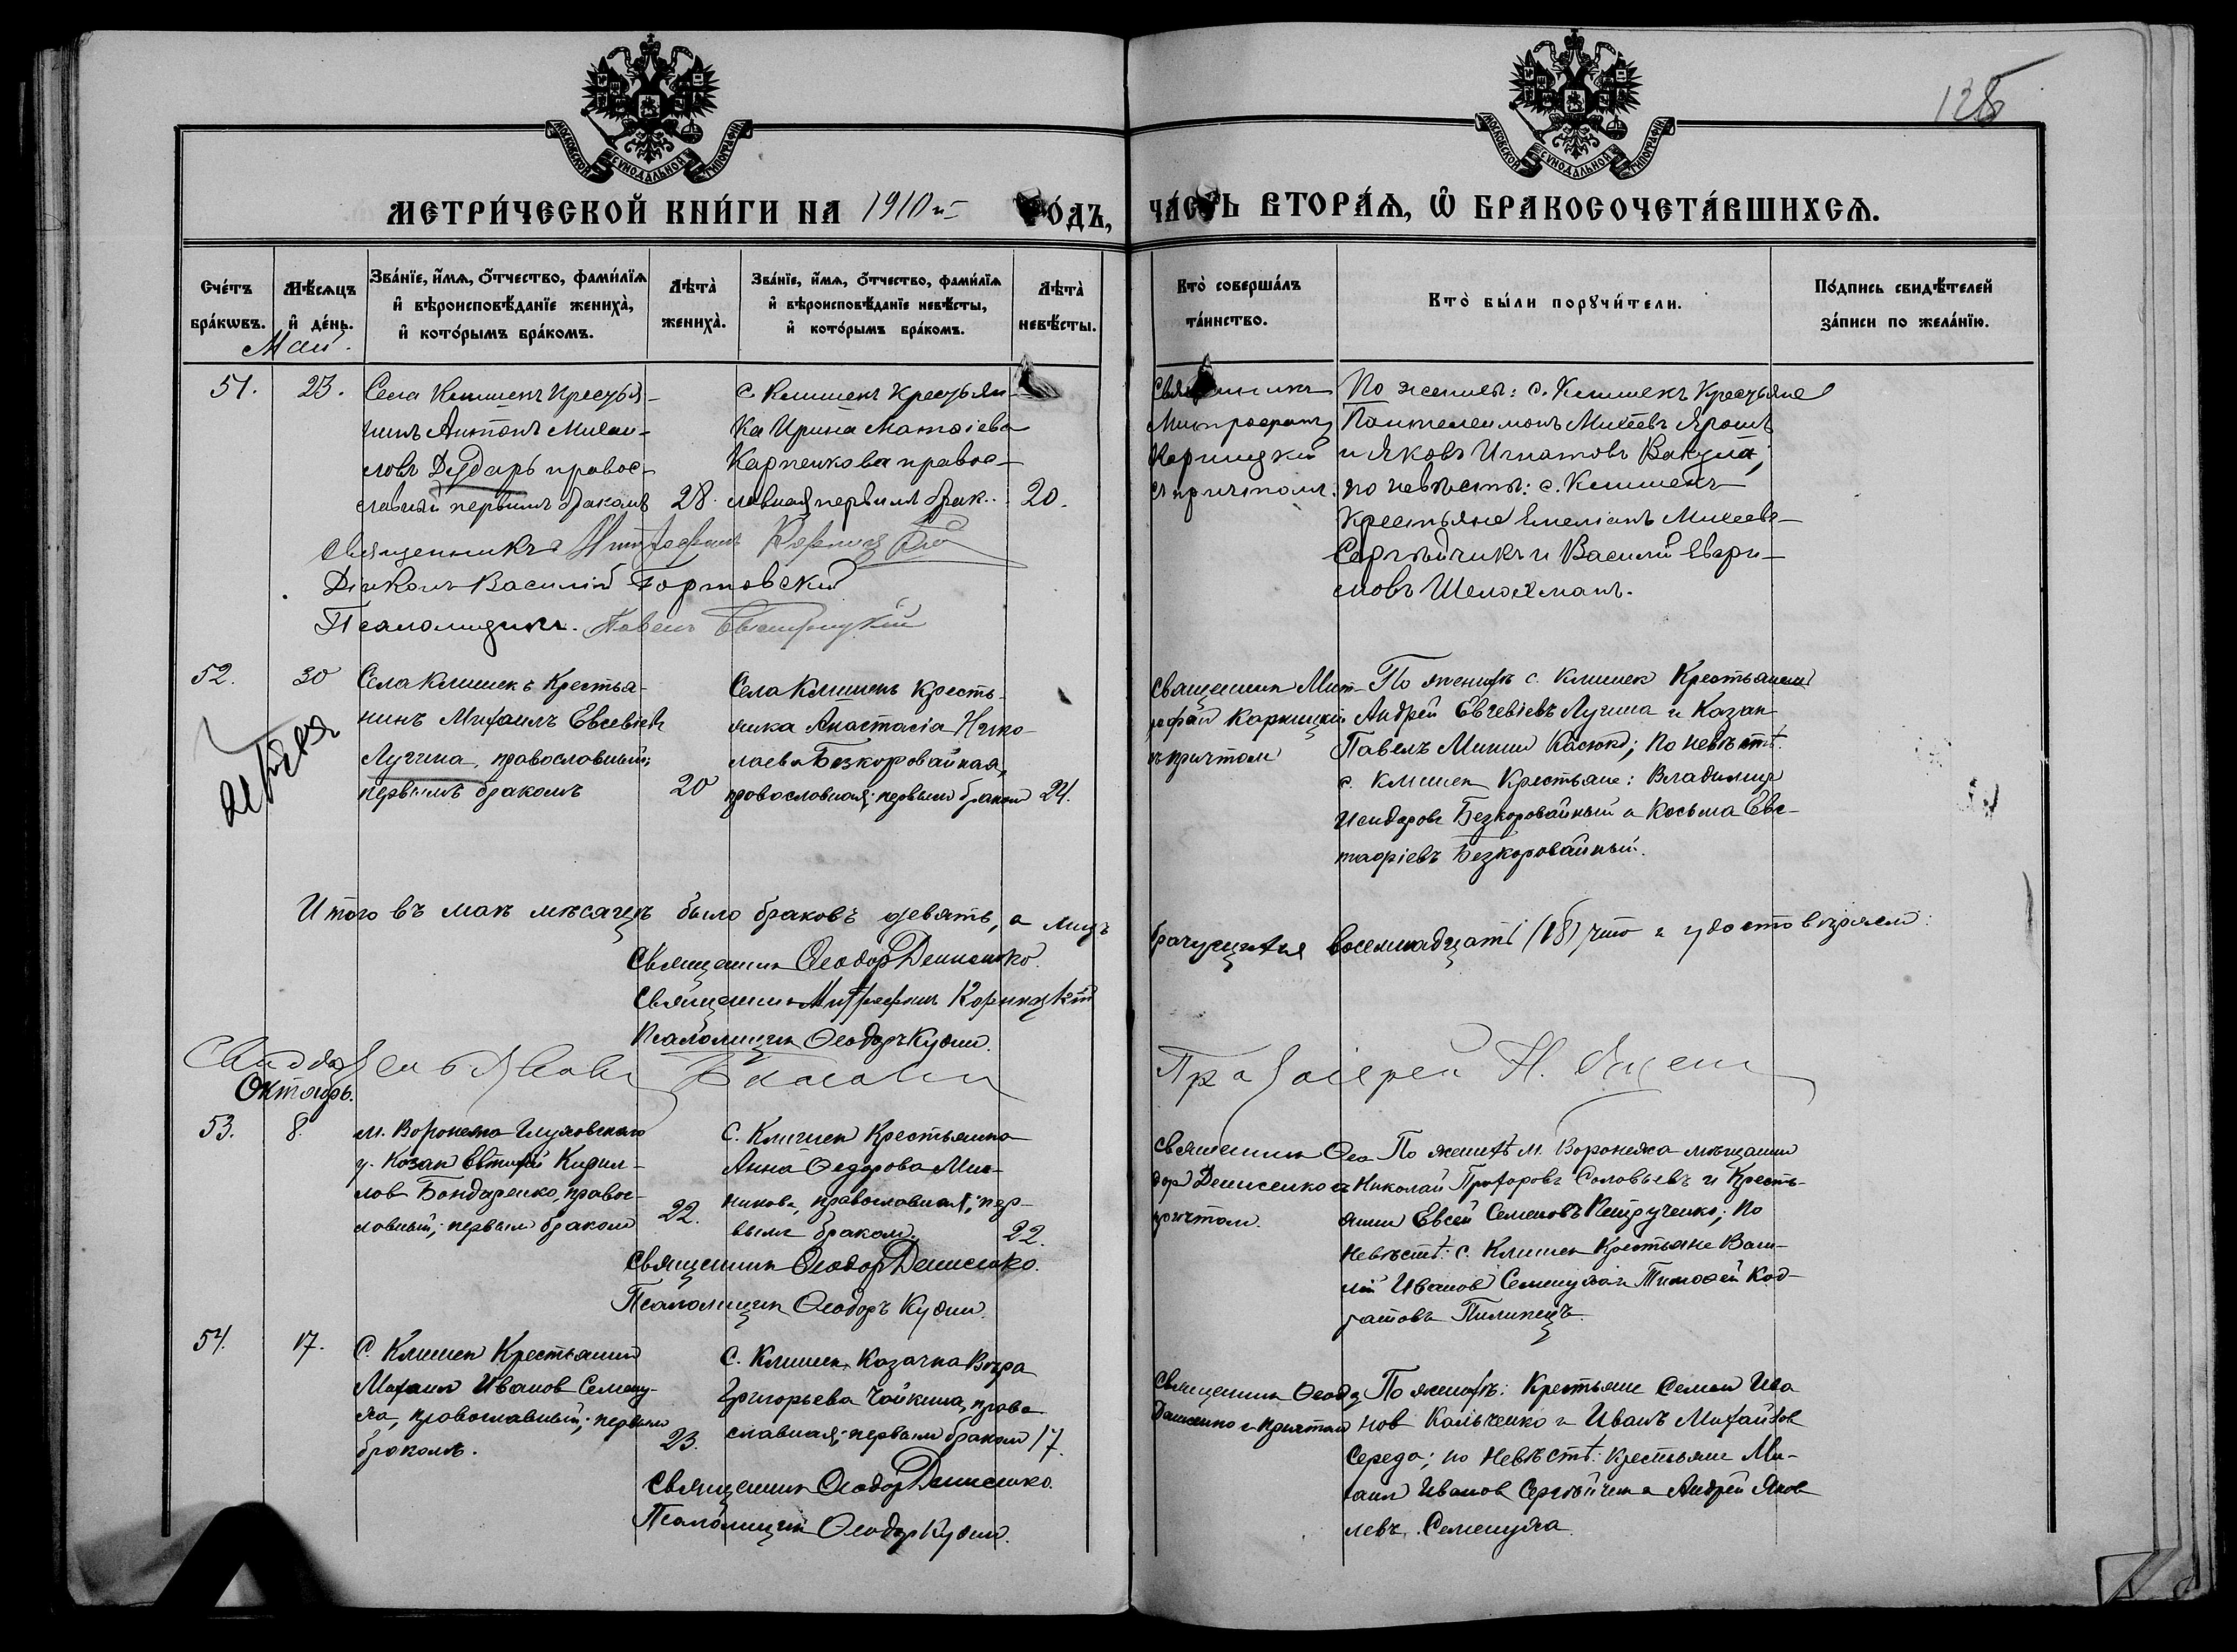 МОСКОВСКОЙ СУНОДАЛЬНОЙ ТИПОГРАФІИ
МОСКОВСКОЙ СУНОДАЛЬНОЙ ТИПОГРАФІИ
МЕТРИ́ЧЕСКОЙ КНИ́ГИ НА 1910 й ГО́ДЪ, ЧА́СТЬ ВТОРА́Ѧ, Ѽ БРАКОСОЧЕТА́ВШИХСѦ.
Сче́тъ бра́кѡвъ.
Мѣ́сѧцъ и҆ де́нь.
Зва́нїе, и҆́мѧ, ѻ҆́тчество, фами́лїѧ
и҆ вѣроисповѣ́данїе жениха̀,
и҆ кото́рымъ бра́комъ.
Лѣта̀
жениха̀.
Зва́нїе, и҆́мѧ, ѻ҆́тчество, фами́лїѧ
и҆ вѣроисповѣ́данїе невѣ́сты,
и҆ кото́рымъ бра́комъ.
Лѣта̀
невѣ́сты.
Кто̀ соверша́лъ
та́инство.
Кто̀ бы́ли порꙋчи́тели.
По́дпись свидѣ́телей
за́писи по жела́нїю.
Май.
51.
23.
Села Клишекъ Крестья-
нинъ Антонъ Михаи-
ловъ Дударь правос-
лавный первымъ бракомъ
28.
с. Клишекъ Крестьян-
ка Ирина Матѳіева
Карпенкова правос-
лавная первымъ брак.
20.
Священникъ
Митрофанъ
Корницкій
съ причтомъ.
По женихѣ: с. Клишекъ Крестьяне
Пантелеимонъ Михеевъ Ярошъ
и Яковъ Игнатовъ Вакула;
по невѣстѣ: с. Клишекъ
Крестьяне Емеліанъ Михеевъ
Сергѣйчикъ и Василій Евфи-
мовъ Шелохманъ.
Священникъ Митрофанъ Корницкій
Діаконъ Василій
Псаломщикъ. Павелъ
52.
30
Села Клишекъ Крестья-
нинъ Михаилъ Евсевіевъ
Лугина, православный;
первымъ бракомъ
20
Села Клишекъ Кресть-
янка Анастасія Нико-
лаева Безкоровайная,
православная; первымъ бракомъ
21.
Священникъ Мит-
рофанъ Корницкій
съ причтомъ
По женихѣ с. Клишек Крестьянинъ
Андрей Евсевіевъ Лугина и Козак
Павелъ; по невѣстѣ:
с. Клишек Крестьяне: Владимир
Исидоровъ Безкоровайный и Косьма Евс-
тафіевъ Безкоровайный.
Итого въ маѣ мѣсяцѣ было браковъ девять, а лицъ брачущихся восемнадцать (18) что и удостовѣряем:
Священник Ѳеодор Денисенко.
Священникъ Митрофанъ Корницкій
Псаломщик Ѳеодоръ Кудин.
Протоіерей Н.
Октябрь.
53.
8.
м. Воронежа Глуховскаго
у. Козак Кирил-
лов Бондаренко, правос-
лавный; первым браком
22.
С. Клишек Крестьянка
Анна Ѳедорова Мис-
никова, православная; пер-
вымъ браком.
22.
Священник Ѳео-
дор Денисенко съ
причтом.
По женихѣ м. Воронежа мѣщанин
Николай Прохоровъ Соловьевъ и Кресть-
янин Евсей Семеновъ Петрученко; по
невѣстѣ: с. Клишек Крестьяне Васи-
лій Иванов Семенуха и Тимоѳей Код-
ратовъ Пилипецъ.
Священник Ѳеодор Денисенко.
Псаломщик Ѳеодоръ Кудин.
54.
17.
С. Клишек Крестьянин
Михаил Иванов Семену-
ха, православный; первым
бракомъ.
23.
С. Клишек Козачка Вѣра
Григорьева Чайкина, право-
славная; первым браком
17.
Священник Ѳеодор
Денисенко с причтом
По женихѣ: Крестьяне Семен Ива
нов Кальченко и Иванъ Михайлов
Середа; по невѣстѣ: Крестьяне Ми-
хаил Иванов Сергѣйчик и Андрей Яков
левъ Семенуха.
Священник Ѳеодор Денисенко.
Псаломщик Ѳеодор Кудин.